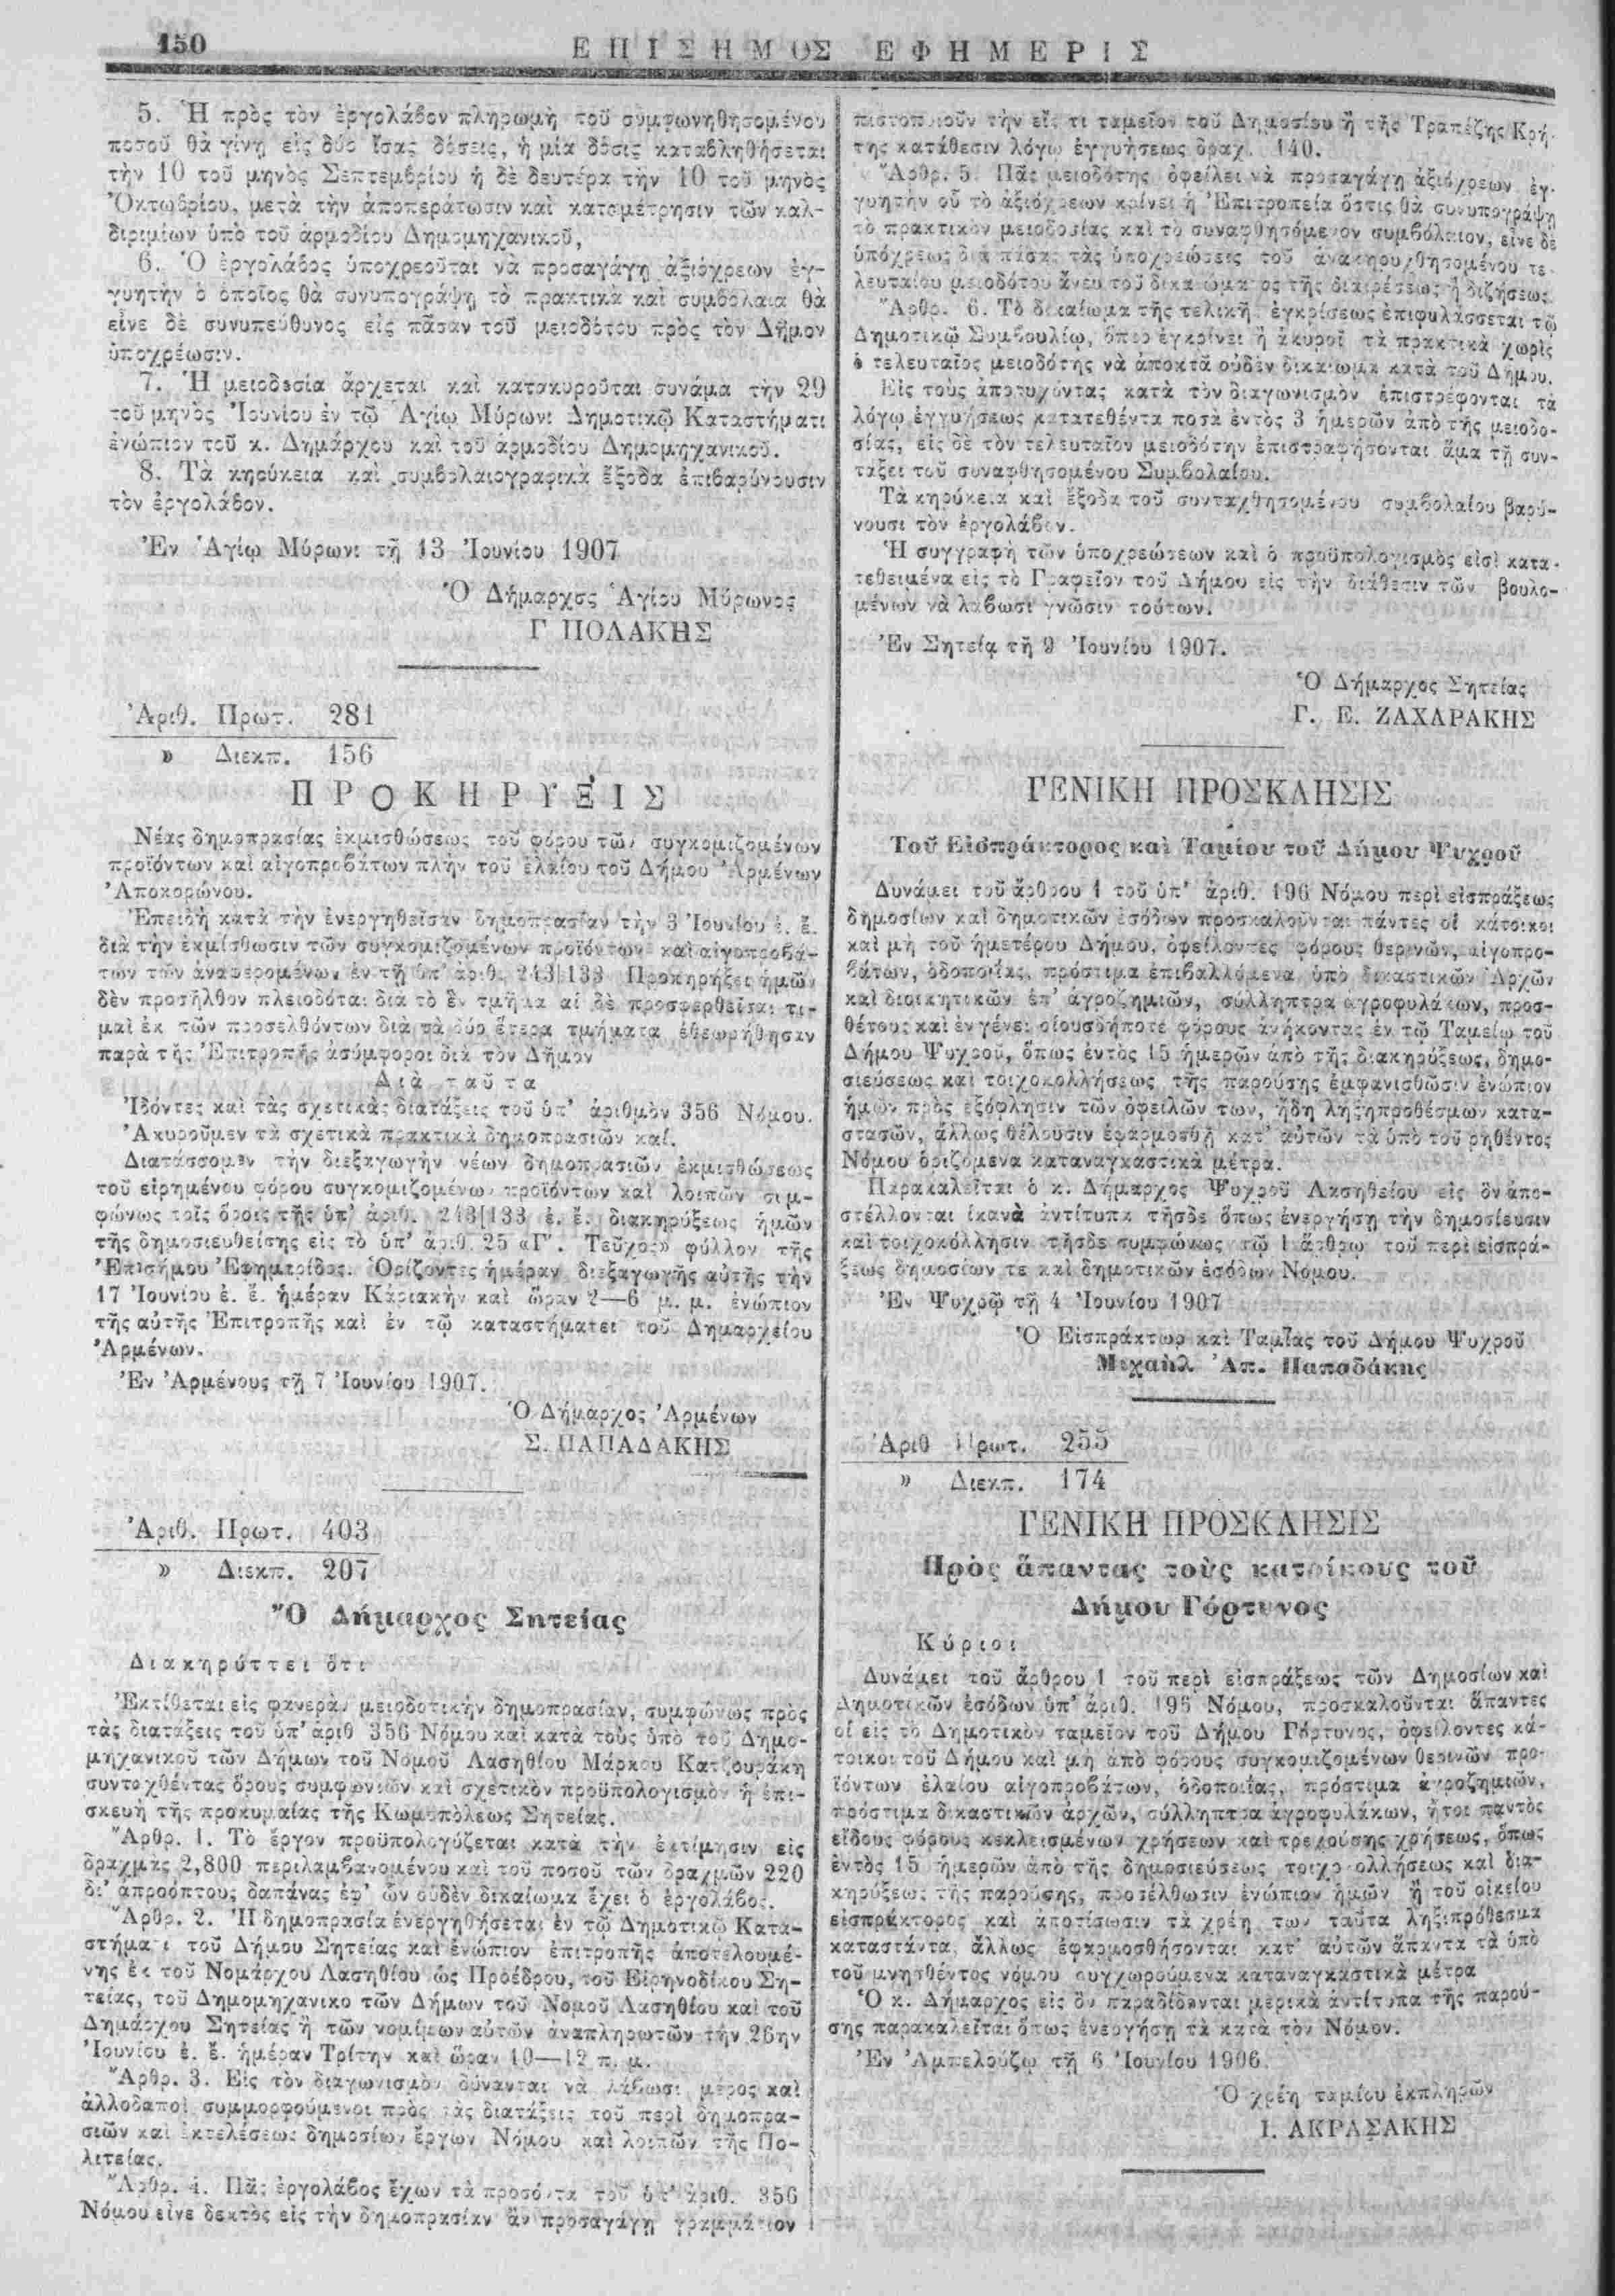 150
ΕΠΙΣΗΜΟΣ ΕΦΗΜΕΡΙΣ
5. Ἡ πρὸς τὸν ἐργολάβον πληρωμὴ τοῦ συμφωνηθησομένου
ποσοῦ θὰ γίνῃ εἰς δύο ἴσας δόσεις, ἡ μία δόσις καταβληθήσεται
τὴν 10 τοῦ μηνὸς Σεπτεμβρίου ἡ δὲ δευτέρα τὴν 10 τοῦ μηνὸς
Ὀκτωβρίου, μετὰ τὴν ἀποπεράτωσιν καὶ καταμέτρησιν τῶν καλ-
διριμίων ὑπὸ τοῦ ἁρμοδίου Δημομηχανικοῦ,
6. Ὁ ἐργολάβος ὑποχρεοῦται νὰ προσαγάγῃ ἀξιόχρεων ἐγ-
γυητὴν ὁ ὁποῖος θὰ συνυπογράψῃ τὸ πρακτικὰ καὶ συμβόλαια θὰ
εἶνε δὲ συνυπεύθυνος εἰς πᾶσαν τοῦ μειοδότου πρὸς τὸν Δῆμον
ὑποχρέωσιν.
7. Ἡ μειοδοσία ἄρχεται καὶ κατακυροῦται συνάμα τὴν 29
τοῦ μηνὸς Ἰουνίου ἐν τῷ Ἁγίῳ Μύρωνι Δημοτικῷ Καταστήματι
ἐνώπιον τοῦ κ. Δημάρχου καὶ τοῦ ἁρμοδίου Δημομηχανικοῦ.
8. Τὰ κηρύκεια καὶ συμβολαιογραφικὰ ἔξοδα ἐπιβαρύνουσιν
τὸν ἐργολάβον.
Ἐν Ἁγίῳ Μύρωνι τῇ 13 Ἰουνίου 1907
Ὁ Δήμαρχος Ἁγίου Μύρωνος
Γ ΠΟΛΑΚΗΣ
Ἀριθ. Πρωτ. 281
» Διεκπ. 156
ΠΡΟΚΗΡΥΞΙΣ
Νέας δημοπρασίας ἐκμισθώσεως τοῦ φόρου τῶν συγκομιζομένων
προϊόντων καὶ αἰγοπροβάτων πλὴν τοῦ ἐλαίου τοῦ Δήμου Ἀρμένων
Ἀποκορώνου.
Ἐπειδὴ κατὰ τὴν ἐνεργηθεῖσαν δημοπρασίαν τὴν 3 Ἰουνίου ἐ. ἔ.
διὰ τὴν ἐκμίσθωσιν τῶν συγκομιζομένων προϊόντων καὶ αἰγοπροβά-
των τῶν ἀναφερομένων ἐν τῇ ὑπ' ἀριθ. 243|133 Προκηρήξει ἡμῶν
δὲν προσῆλθον πλειοδόται διὰ τὸ ἓν τμῆμα αἱ δὲ προσφερθεῖσαι τι-
μαὶ ἐκ τῶν προσελθόντων διὰ τὰ δύο ἕτερα τμήματα ἐθεωρήθησαν
παρὰ τῆς Ἐπιτροπῆς ἀσύμφοροι διὰ τὸν Δῆμον
Διὰ ταῦτα
Ἰδόντες καὶ τὰς σχετικὰς διατάξεις τοῦ ὑπ' ἀριθμὸν 356 Νόμου.
Ἀκυροῦμεν τὰ σχετικὰ πρακτικὰ δημοπρασιῶν καί.
Διατάσσομεν τὴν διεξαγωγὴν νέων δημοπρασιῶν ἐκμισθώσεως
τοῦ εἰρημένου φόρου συγκομιζομένων προϊόντων καὶ λοιπῶν συμ-
φώνως τοῖς ὅροις τῆς ὑπ' ἀριθ. 243|133 ἐ. ἔ. διακηρύξεως ἡμῶν
τῆς δημοσιευθείσης εἰς τὸ ὑπ' ἀριθ. 25 «Γ'. Τεῦχος» φύλλον τῆς
Ἐπισήμου Ἐφημερίδος. Ὁρίζοντες ἡμέραν διεξαγωγῆς αὐτῆς τὴν
17 Ἰουνίου ἐ. ἔ. ἡμέραν Κυριακὴν καὶ ὥραν 2—6 μ. μ. ἐνώπιον
τῆς αὐτῆς Ἐπιτροπῆς καὶ ἐν τῷ καταστήματει τοῦ Δημαρχείου
Ἀρμένων.
Ἐν Ἀρμένους τῇ 7 Ἰουνίου 1907.
Ὁ Δήμαρχος Ἀρμένων
Σ. ΠΑΠΑΔΑΚΗΣ
Ἀριθ. Πρωτ. 403
» Διεκπ. 207
Ὁ Δήμαρχος Σητείας
Διακηρύττει ὅτι
Ἐκτίθεται εἰς φανερὰν μειοδοτικὴν δημοπρασίαν, συμφώνως πρὸς
τὰς διατάξεις τοῦ ὑπ' ἀριθ 356 Νόμου καὶ κατὰ τοὺς ὑπὸ τοῦ Δημο-
μηχανικοῦ τῶν Δήμων τοῦ Νομοῦ Λασηθίου Μάρκου Κατζουράκη
συνταχθέντας ὅρους συμφωνιῶν καὶ σχετικὸν προϋπολογισμὸν ἡ ἐπι-
σκευὴ τῆς προκυμαίας τῆς Κωμοπόλεως Σητείας.
Ἄρθρ. 1. Τὸ ἔργον προϋπολογίζεται κατὰ τὴν ἐκτίμησιν εἰς
δραχμὰς 2,800 περιλαμβανομένου καὶ τοῦ ποσοῦ τῶν δραχμῶν 220
δι' ἀπροόπτους δαπάνας ἐφ' ὧν οὐδὲν δικαίωμα ἔχει ὁ ἐργολάβος.
Ἄρθρ. 2. Ἡ δημοπρασία ἐνεργηθήσεται ἐν τῷ Δημοτικῷ Κατα-
στήματι τοῦ Δήμου Σητείας καὶ ἐνώπιον ἐπιτροπῆς ἀποτελουμέ-
νης ἐκ τοῦ Νομάρχου Λασηθίου ὡς Προέδρου, τοῦ Εἰρηνοδίκου Ση-
τείας, τοῦ Δημομηχανικο τῶν Δήμων τοῦ Νομοῦ Λασηθίου καὶ τοῦ
Δημάρχου Σητείας ἢ τῶν νομίμων αὐτῶν ἀναπληρωτῶν τὴν 26ην
Ἰουνίου ἐ. ἔ. ἡμέραν Τρίτην καὶ ὥραν 10—12 π. μ.
Ἄρθρ. 3. Εἰς τὸν διαγωνισμὸν δύνανται νὰ λάβωσι μέρος καὶ
ἀλλοδαποὶ συμμορφούμενοι πρὸς τὰς διατάξεις τοῦ περὶ δημοπρα-
σιῶν καὶ ἐκτελέσεως δημοσίων ἔργων Νόμου καὶ λοιπῶν τῆς Πο-
λιτείας.
Ἄρθρ. 4. Πᾶς ἐργολάβος ἔχων τὰ προσόντα τοῦ ὑπ' ἀριθ. 356
Νόμου εἶνε δεκτὸς εἰς τὴν δημοπρασίαν ἂν προσαγάγῃ γραμμάτιον
πιστοποιοῦν τὴν εἴς τι ταμεῖον τοῦ Δημοσίου ἢ τῆς Τραπέζης Κρή-
της κατάθεσιν λόγῳ ἐγγυήσεως δραχ. 140.
Ἄρθρ. 5. Πᾶς μειοδότης ὀφείλει νὰ προσαγάγῃ ἀξιόχρεων ἐγ-
γυητὴν οὗ τὸ ἀξιόχρεων κρίνει ἡ Ἐπιτροπεία ὅστις θὰ συνυπογράψῃ
τὸ πρακτικὸν μειοδοσίας καὶ τὸ συναφθησόμενον συμβόλαιον, εἶνε δὲ
ὑπόχρεως διὰ πάσας τὰς ὑποχρεώσεις τοῦ ἀνακηρυχθησομένου τε-
λευταίου μειοδότου ἄνευ τοῦ δικαιώματος τῆς διαιρέσεως ἢ διζήσεως.
Ἄρθρ. 6. Τὸ δικαίωμα τῆς τελικῆς ἐγκρίσεως ἐπιφυλάσσεται τῷ
Δημοτικῷ Συμβουλίῳ, ὅπερ ἐγκρίνει ἢ ἀκυροῖ τὰ πρακτικὰ χωρὶς
ὁ τελευταῖος μειοδότης νὰ ἀποκτᾷ οὐδὲν δικαίωμα κατὰ τοῦ Δήμου.
Εἰς τοὺς ἀποτυχόντας κατὰ τὸν διαγωνισμὸν ἐπιστρέφονται τὰ
λόγῳ ἐγγυήσεως κατατεθέντα ποσὰ ἐντὸς 3 ἡμερῶν ἀπὸ τῆς μειοδο-
σίας, εἰς δὲ τὸν τελευταῖον μειοδότην ἐπιστραφήσονται ἅμα τῇ συν-
τάξει τοῦ συναφθησομένου Συμβολαίου.
Τὰ κηρύκεια καὶ ἔξοδα τοῦ συνταχθησομένου συμβολαίου βαρύ-
νουσι τὸν ἐργολάβον.
Ἡ συγγραφὴ τῶν ὑποχρεώσεων καὶ ὁ προϋπολογισμὸς εἰσὶ κατα-
τεθειμένα εἰς τὸ Γραφεῖον τοῦ Δήμου εἰς τὴν διάθεσιν τῶν βουλο-
μένων νὰ λάβωσι γνῶσιν τούτων.
Ἐν Σητείᾳ τῇ 9 Ἰουνίου 1907.
Ὁ Δήμαρχος Σητείας
Γ. Ε. ΖΑΧΑΡΑΚΗΣ
ΓΕΝΙΚΗ ΠΡΟΣΚΛΗΣΙΣ
Τοῦ Εἰσπράκτορος καὶ Ταμίου τοῦ Δήμου Ψυχροῦ
Δυνάμει τοῦ ἄρθρου 1 τοῦ ὑπ' ἀριθ. 196 Νόμου περὶ εἰσπράξεως
δημοσίων καὶ δημοτικῶν ἐσόδων προσκαλοῦνται πάντες οἱ κάτοικοι
καὶ μὴ τοῦ ἡμετέρου Δήμου, ὀφείλοντες φόρους θερινῶν, αἰγοπρο-
βάτων, ὁδοποιίας, πρόστιμα ἐπιβαλλόμενα ὑπὸ δικαστικῶν Ἀρχῶν
καὶ διοικητικῶν ἐπ' ἀγροζημιῶν, σύλληπτρα ἀγροφυλάκων, προσ-
θέτους καὶ ἐν γένει οἱουσδήποτε φόρους ἀνήκοντας ἐν τῷ Ταμείῳ τοῦ
Δήμου Ψυχροῦ, ὅπως ἐντὸς 15 ἡμερῶν ἀπὸ τῆς διακηρύξεως, δημο-
σιεύσεως καὶ τοιχοκολλήσεως τῆς παρούσης ἐμφανισθῶσιν ἐνώπιον
ἡμῶν πρὸς ἐξόφλησιν τῶν ὀφειλῶν των, ἤδη ληξηπροθέσμων κατα-
στασῶν, ἄλλως θέλουσιν ἐφαρμοσθῆ κατ' αὐτῶν τὰ ὑπὸ τοῦ ρηθέντος
Νόμου ὁριζόμενα καταναγκαστικὰ μέτρα.
Παρακαλεῖται ὁ κ. Δήμαρχος Ψυχροῦ Λασηθείου εἰς ὃν ἀπο-
στέλλονται ἱκανὰ ἀντίτυπα τῆσδε ὅπως ἐνεργήσῃ τὴν δημοσίευσιν
καὶ τοιχοκόλλησιν τῆσδε συμφώνως τῷ 1 ἄρθρῳ τοῦ περὶ εἰσπρά-
ξεως δημοσίων τε καὶ δημοτικῶν ἐσόδων Νόμου.
Ἐν Ψυχρῷ τῇ 4 Ἰουνίου 1907
Ὁ Εἰσπράκτωρ καὶ Ταμίας τοῦ Δήμου Ψυχροῦ
Μιχαὴλ Ἀπ. Παπαδάκης
Ἀριθ Πρωτ. 255
» Διεκπ. 174
ΓΕΝΙΚΗ ΠΡΟΣΚΛΗΣΙΣ
Πρὸς ἅπαντας τοὺς κατοίκους τοῦ
Δήμου Γόρτυνος
Κύριοι
Δυνάμει τοῦ ἄρθρου 1 τοῦ περὶ εἰσπράξεως τῶν Δημοσίων καὶ
Δημοτικῶν ἐσόδων ὑπ' ἀριθ. 196 Νόμου, προσκαλοῦνται ἅπαντες
οἱ εἰς τὸ Δημοτικὸν ταμεῖον τοῦ Δήμου Γόρτυνος, ὀφείλοντες κά-
τοικοι τοῦ Δήμου καὶ μὴ ἀπὸ φόρους συγκομιζομένων θερινῶν προ-
ϊόντων ἐλαίου αἰγοπροβάτων, ὁδοποιίας, πρόστιμα ἀγροζημιῶν,
πρόστιμα δικαστικῶν ἀρχῶν, σύλληπτρα ἀγροφυλάκων, ἤτοι παντὸς
εἴδους φόρους κεκλεισμένων χρήσεων καὶ τρεχούσης χρήσεως, ὅπως
ἐντὸς 15 ἡμερῶν ἀπὸ τῆς δημοσιεύσεως τοιχοκολλήσεως καὶ δια-
κηρύξεως τῆς παρούσης, προσέλθωσιν ἐνώπιον ἡμῶν ἢ τοῦ οἰκείου
εἰσπράκτορος καὶ ἀποτίσωσιν τὰ χρέη των ταῦτα ληξιπρόθεσμα
καταστάντα, ἄλλως ἐφαρμοσθήσονται κατ' αὐτῶν ἅπαντα τὰ ὑπὸ
τοῦ μνησθέντος νόμου συγχωρούμενα καταναγκαστικὰ μέτρα
Ὁ κ. Δήμαρχος εἰς ὃν παραδίδονται μερικὰ ἀντίτυπα τῆς παρού-
σης παρακαλεῖται ὅπως ἐνεργήσῃ τὰ κατὰ τὸν Νόμον.
Ἐν Ἀμπελούζῳ τῇ 6 Ἰουνίου 1906.
Ὁ χρέη ταμίου ἐκπληρῶν
Ι. ΑΚΡΑΣΑΚΗΣ